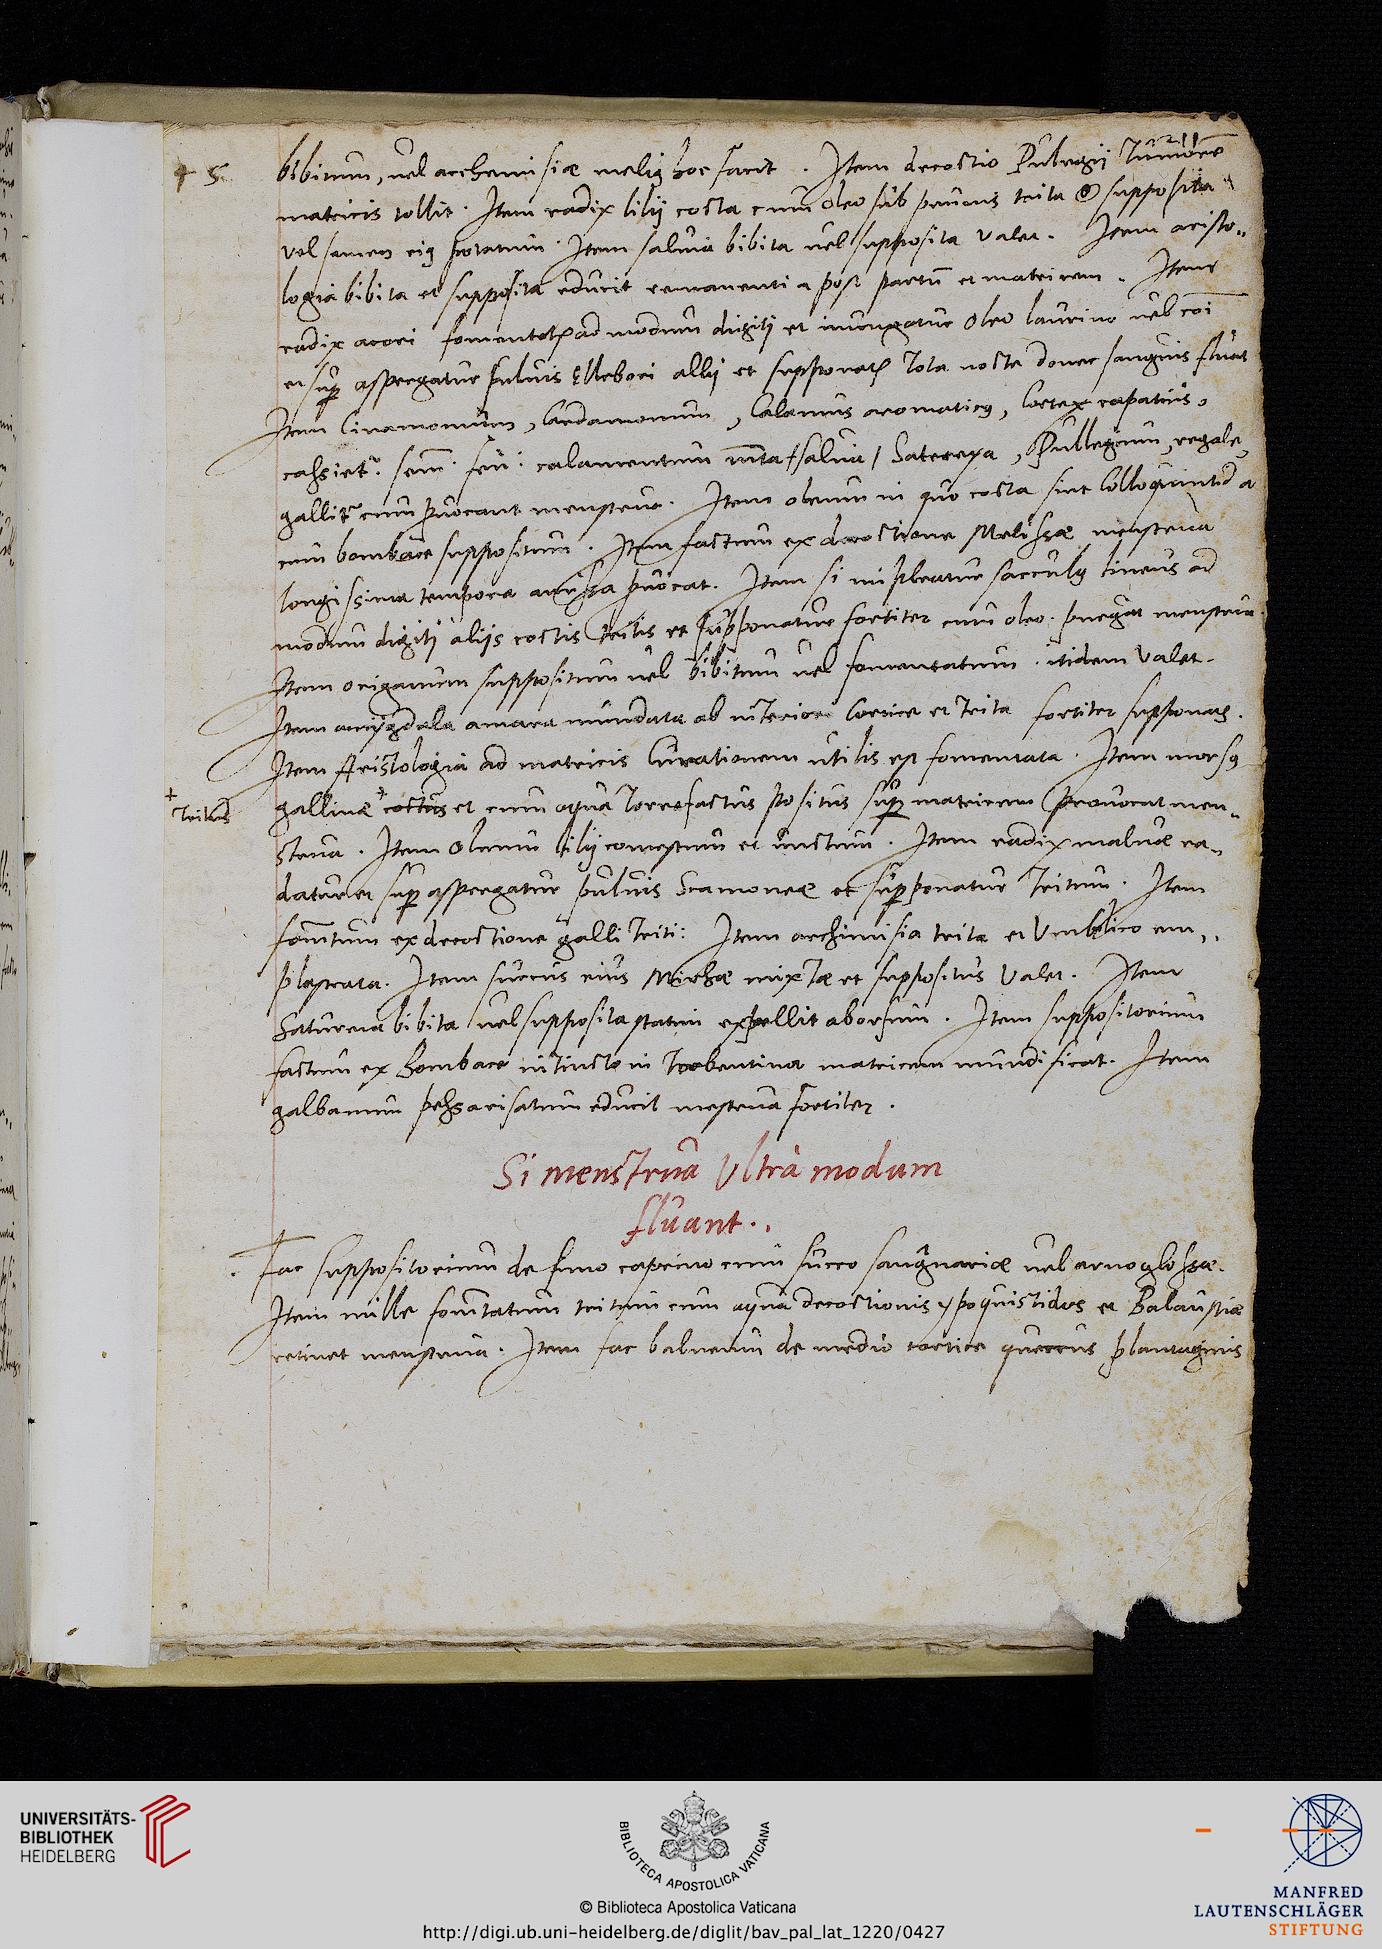 4 5
bibitum, vel archemisiæ meliꝯ hoc facit. Item decoctio Pulegij Tumore
matricis tollit. Item radix lilij cocta cum oleo sub prunis trita & supposita
vel semen eiꝯ potatum. Item salvia bibita vel supposita valet. Item aristo-
logia bibita et supposita educit remanentia post partū et matricem. Item
radix acori fomentat ad modum digiti et inungatur oleo laurino vel cōi
et suꝑ aspergatur pulvis Ellebori albi et supponat Tota nocte donec sanguis fluat
Item Cinamomum, Cardamomum, Calamus aromaticꝯ, Cortex capatius,
calamentum salvia, Satereya, Pullegium, regale,
cum provocant menstrua. Item oleum in quo cocta sint Colloquintida
cum bombace suppositum. Item factum ex decoctione Melissæ menstrua
longissima tempora amissa provocat. Item si impleatur sacculꝯ lineus ad
modum digiti alijs coctis tritis et supponatur fortiter cum oleo. purgat menstrua.
Item origanum suppositum vel bibitum vel fomentatum. itidem valet.
Item amigdala amara mundata ab interiori Cortice et trita fortiter supponat.
Item Aristologia ad matricis Curationem utilis est fomentata. Item morsꝯ
+ Tritus
gallinæ + coctus et cum aqua Torrefactus positus suꝑ matricem provocat men-
strua. Item Oleum lilij comestum et unctum. Item radix malvæ ra-
datur et suꝑ aspergatur pulvis Scamoneæ et suꝑponatur Tritum. Item
fom̄tum ex decoctione galli triti: Item archimisia trita et Umblico em-
plastrata. Item succus eius Mirhæ mixtæ et suppositus valet. Item
Satureia bibita vel supposita statim expellit aborsum. Item suppositorium
factum ex Bombace intincto in Trebentina matricem mundificat. Item
galbanum pessarisatum educit mestrua fortiter.
Si menstrua Ultrà modum
fluant..
Fac suppositorium de fimo caprino cum succo sanguinariæ vel arnoglossæ.
Item mille fom̄tatum tritum cum aqua decoctionis ypoquistidos et Balaustiæ
retinet menstrua. Item fac balneum de medio cortice quercus plantaginis
UNIVERSITÄTS-
BIBLIOTHEK
HEIDELBERG
BIBLIOTECA APOSTOLICA VATICANA
© Biblioteca Apostolica Vaticana
http://digi.ub.uni-heidelberg.de/diglit/bav_pal_lat_1220/0427
MANFRED
LAUTENSCHLÄGER
STIFTUNG